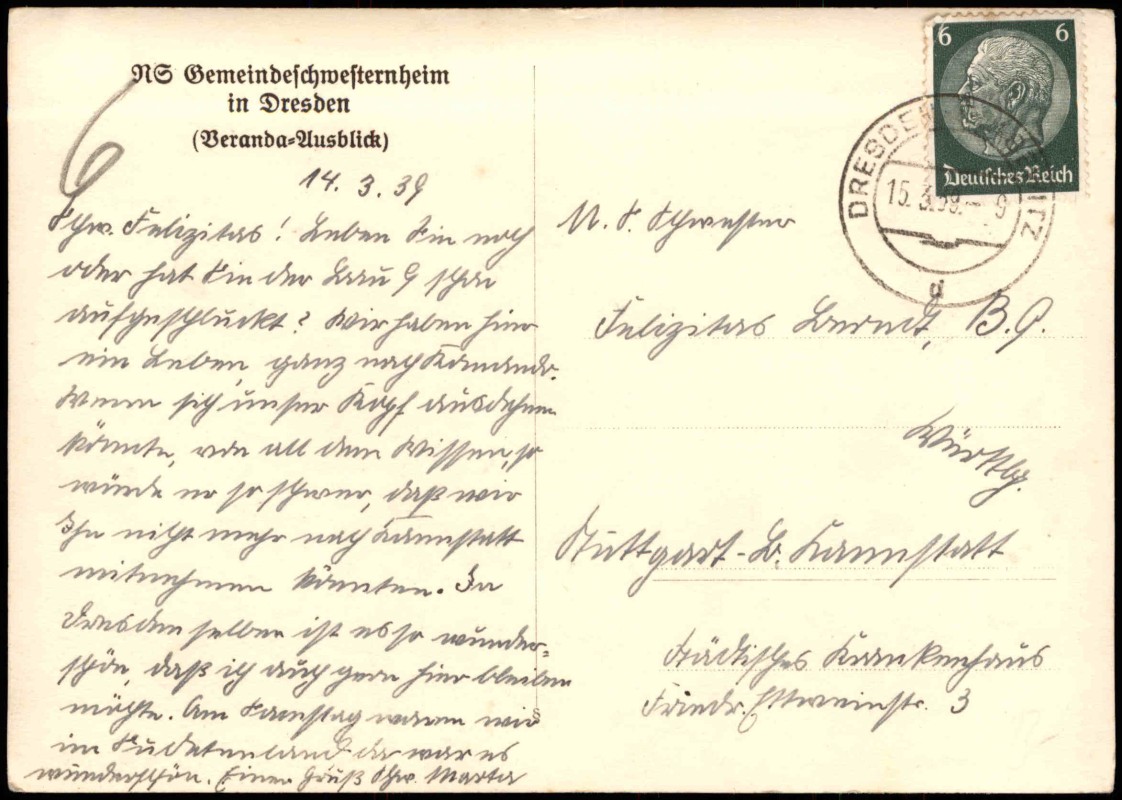 NS Gemeindeschwesternheim
in Dresden
(Veranda-Ausblick)
6
14. 3. 39
Schw. Felizitas! Leben Sie noch
oder hat Sie der Bau 9 schon
aufgeschluckt? Wir haben hier
ein Leben, ganz nach Komando.
Wenn sich unser Kopf ausdehnen
könnte, von all dem Wissen, so
würde er so schwer, daß wir
Ihn nicht mehr nach Kannstatt
mitnehmen könnten. In
Dresden selber ist es so wunder-
schön, daß ich auch gern hier bleiben
möchte. Am Samstag waren wir
im Sudetenland da war es
wunderschön. Einen Gruß Schw. Marta
6 6
Deutsches Reich
DRESDEN
15. 3. 39. 9
d
N. S. Schwester
Felizitas Berndt, B. 9.
Württbg.
Stuttgart-B. Kannstatt
Städtisches Krankenhaus
Friedr. Ettweinstr. 3